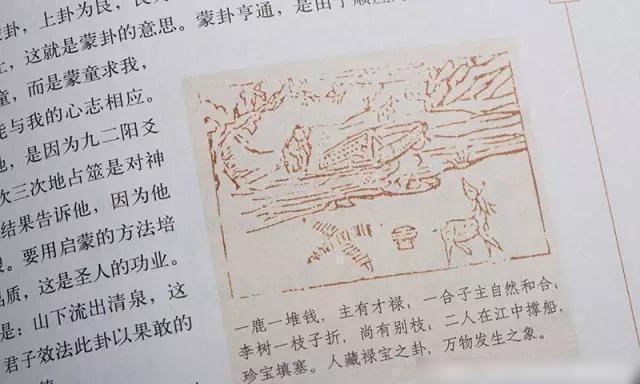 卦，上卦为艮，艮
，这就是蒙卦的意思。蒙卦亨通，是由于
童，而是蒙童求我，
能与我的心志相应。
，是因为九二阳爻
次三次地占筮是对神
结果告诉他，因为他
。要用启蒙的方法培
品质，这是圣人的功业。
是：山下流出清泉，这
君子效法此卦以果敢的
一鹿一堆钱，主有才禄；一合子主自然和合；
李树一枝子折，尚有别枝；二人在江中撑船，
珍宝填塞。人藏禄宝之卦，万物发生之象。